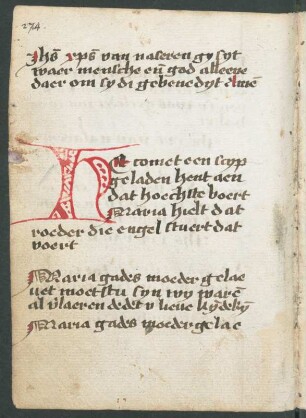 274
Jhs xps van naseren gy syt
waer mensche eñ god alleene
daer om sy di gebenedyt Amē
Nu comet een scyp
geladen hent aen
dat hoechste boert
Maria hielt dat
roeder die engel stuert dat
voert
Maria gades moeder gelae
uet moetstu syn wy warē
al vlaeren dedet v lieue kydekȳ
Maria gades moeder gelae